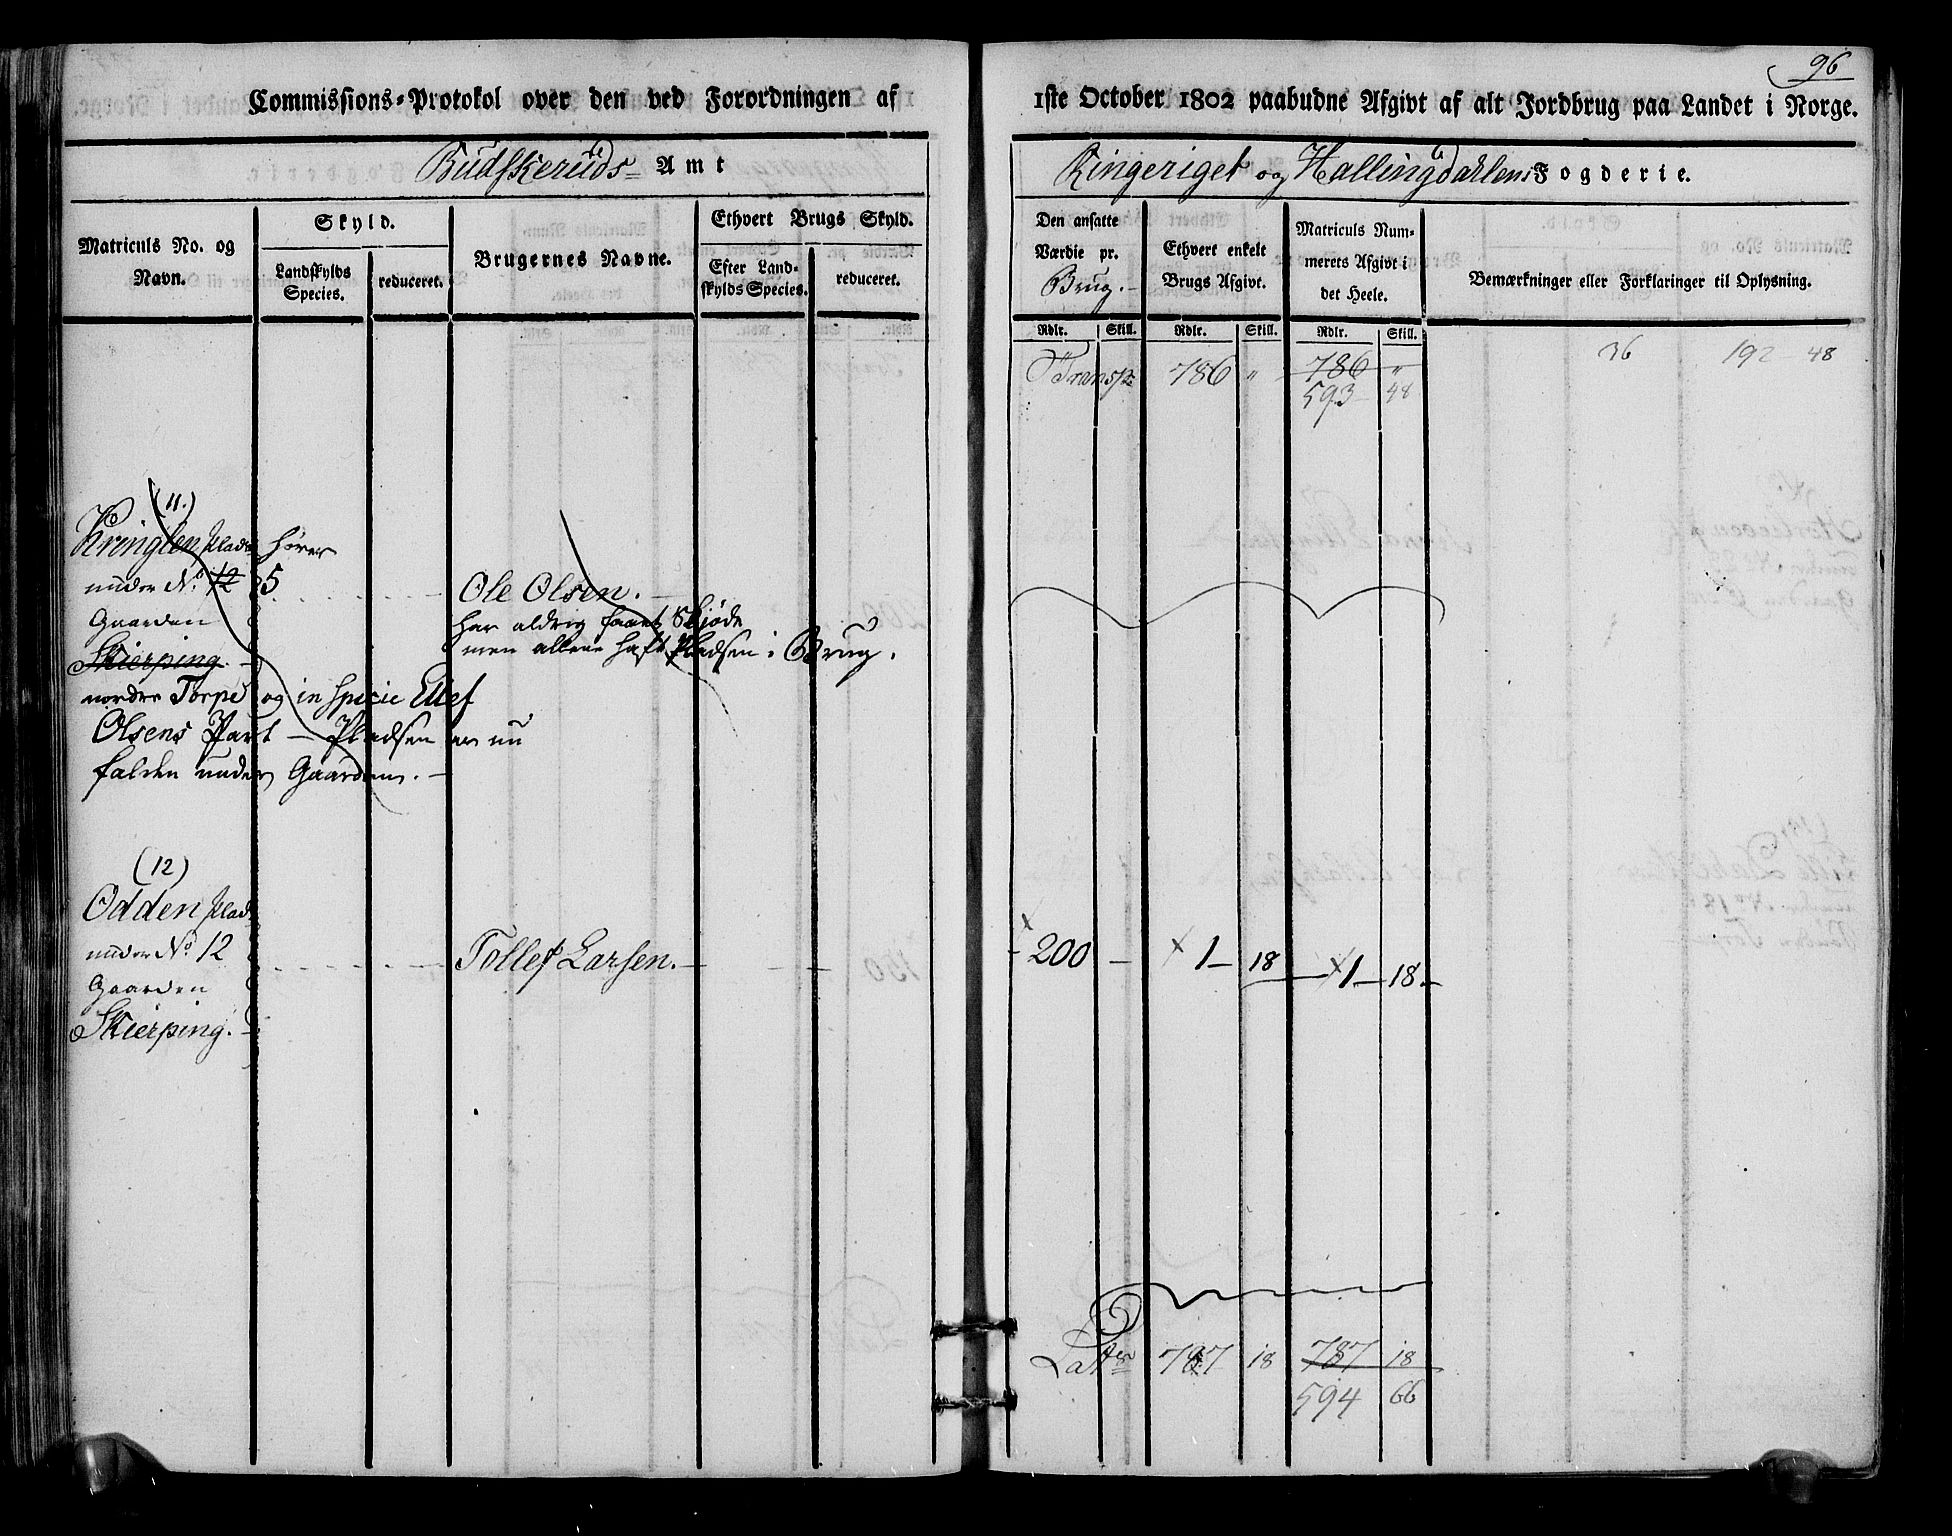 96
Commissions-Protokol over den ved Forordningen af
1ste October 1802 paabudne Afgivt af alt Jordbrug paa Landet i Norge.
Budskeruds Amt
Ringeriget og Hallingdahlens Fogderie.
Matriculs No. og
Navn.
Skyld.
Landskylds
Species.
reduceret.
Brugernes Navne.
Ethvert Brugs Skyld.
Efter Land-
skylds Species.
reduceret.
Den ansatte
Værdie pr.
Brug.
Ethvert enkelt
Brugs Afgivt.
Matriculs Num-
merets Afgivt i
det Heele.
Bemærkninger eller Forklaringer til Oplysning.
Rdlr. Skill. Rdlr. Skill. Rdlr. Skill.
Transp 786 " 786 " 36 192 48
593 48
(11.)
Kringlen Plads hører
under No. 12 5
Gaarden
Skierping.
nordre Torpe og in specie Ellef
Olsens Part - Pladsen er nu
falden under Gaarden. -
Ole Olsen.
har aldrig faaet Skjøde
men allene haft Pladsen i Brug.
(12)
Odden Plads
under No. 12
Gaarden
Skierping.
Tollef Larsen. 200 1 18 1 18
Lat 787 18 787 18
594 66